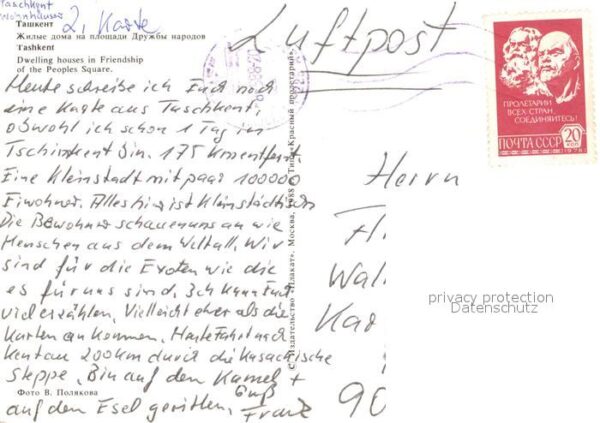 Taschkent
Wohnhäuser
2. Karte
Ташкент
Жилые дома на площади Дружбы народов
Tashkent
Dwelling houses in Friendship
of the Peoples Square.
Luftpost
Heute schreibe ich Euch noch
eine Karte aus Taschkent,
obwohl ich schon 1 Tag in
Tschimkent bin. 175 km entfernt.
Eine Kleinstadt mit paar 100000
Einwohner. Alles hier ist kleinstädtisch
Die Bewohner schauen uns an wie
Menschen aus dem Weltall. Wir
sind für die Exoten wie die
es für uns sind. Ich kann Euch
viel erzählen. Vielleicht eher als die
Karten ankommen. Heute Fahrt nach
200 km durch die Kasachische
Steppe. Bin auf den Kamel +
auf den Esel geritten. Gruß
Frank
Фото В. Полякова
© Издательство «Плакат». Москва, 1988 г. Тип. «Красный пролетарий».
ПРОЛЕТАРИИ
ВСЕХ СТРАН,
СОЕДИНЯЙТЕСЬ!
ПОЧТА СССР
20
КОП
1976
Herrn
H.
Wal
Kar
90
privacy protection
Datenschutz